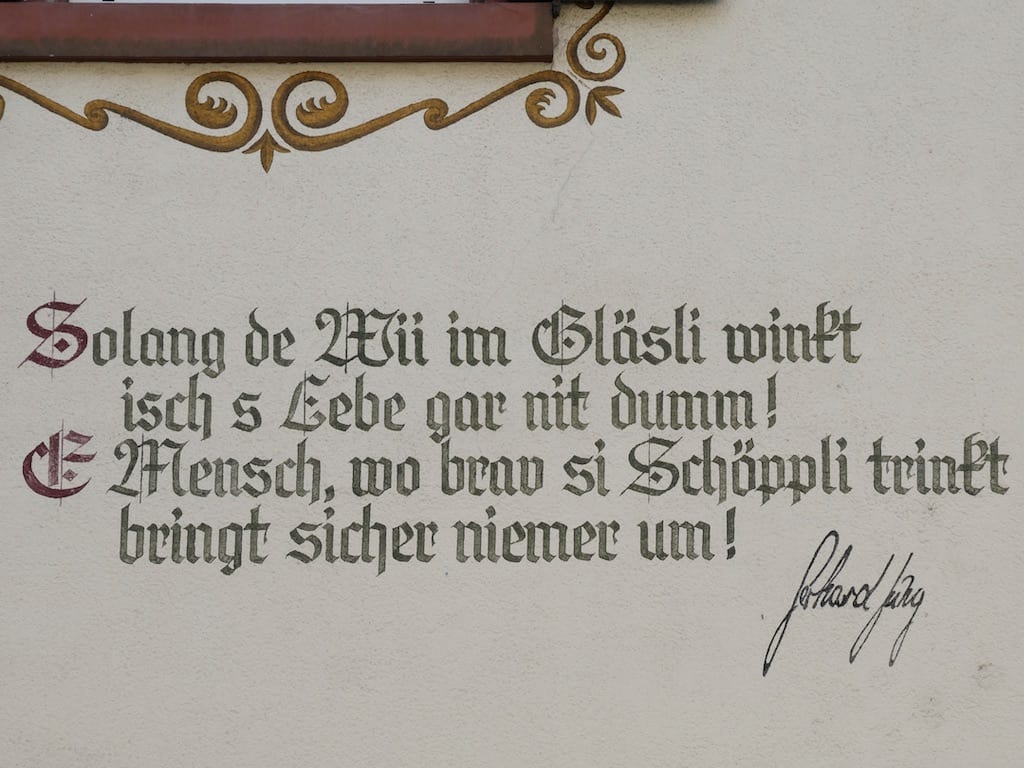 Solang de Wii im Gläsli winkt
isch s Lebe gar nit dumm!
E Mensch, wo brav si Schöppli trinkt
bringt sicher niemer um!
Gerhard Jung